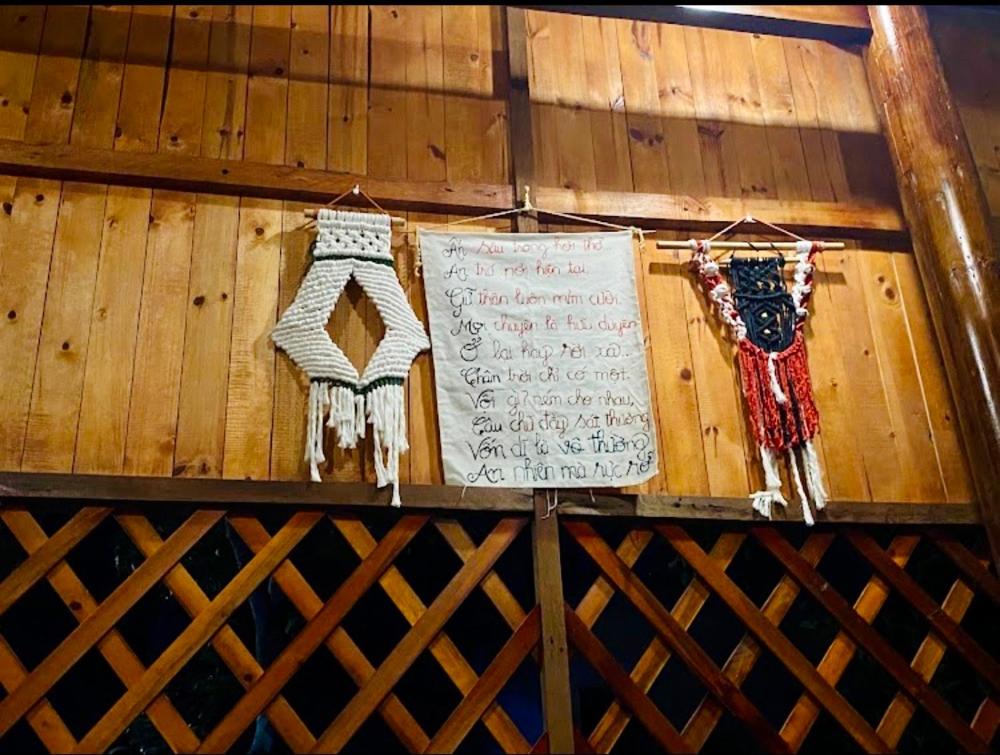 Ẩn sâu trong hơi thở
An trú nơi hiện tại
Giữ thân luôn mỉm cười.
Mọi chuyện là hữu duyên
Ở lại hay rời xa...
Chân trời chỉ có một.
Vội gì ném cho nhau,
Câu chữ đầy sát thương
Vốn dĩ là vô thường
An nhiên mà rực rỡ